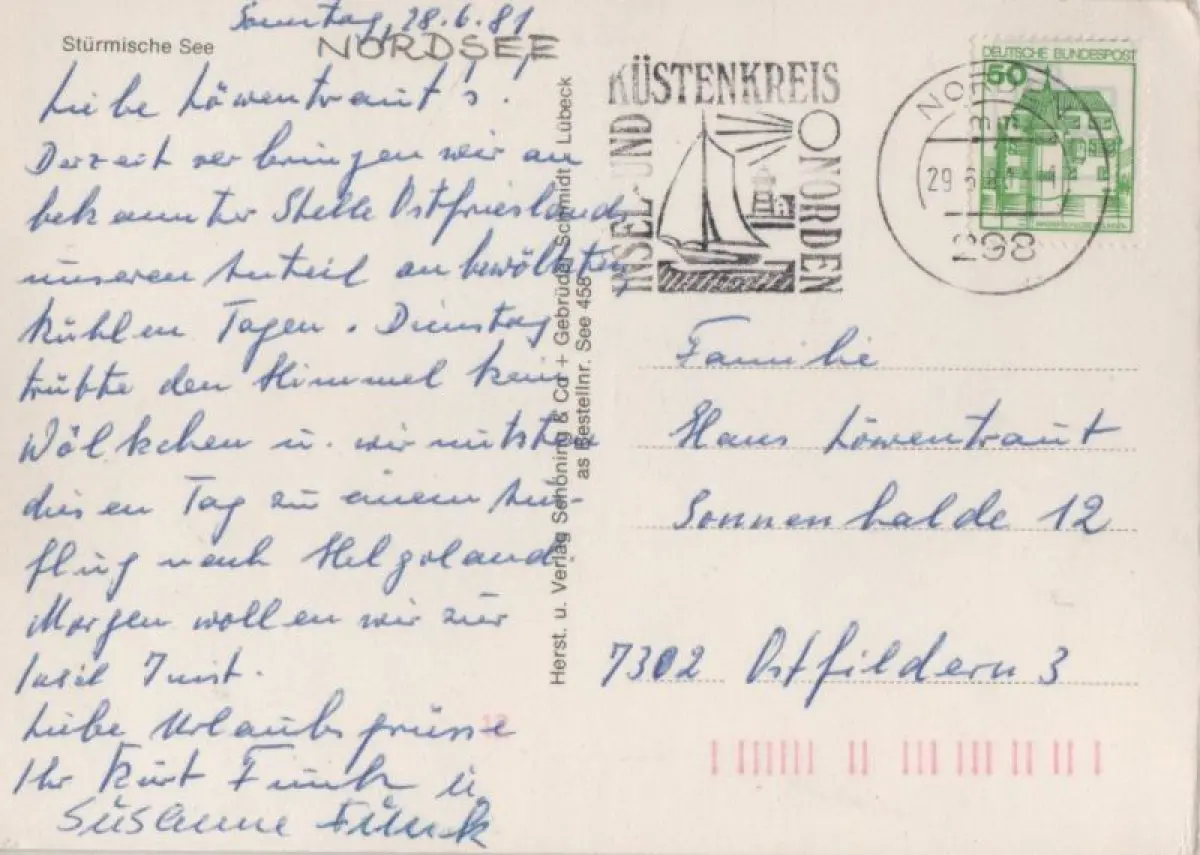 Sonntag, 28.6.81
Stürmische See
NORDSEE
Liebe Löwentraut's!
Derzeit verbringen wir an
bekannter Stelle Ostfrieslands
unseren Anteil an bewölkten,
kühlen Tagen. Dienstag
trübte den Himmel kein
Wölkchen u. wir nutzten
diesen Tag zu einem Aus-
flug nach Helgoland.
Morgen wollen wir zur
Insel Juist.
Liebe Urlaubsgrüsse
Ihr Kurt Funk u.
Susanne Funk
Herst. u. Verlag Schöning & Co + Gebrüder Schmidt Lübeck
as Bestellnr. See 458
INSEL- UND
KÜSTENKREIS
NORDEN
DEUTSCHE BUNDESPOST
50
298
Familie
Hans Löwentraut
Sonnenhalde 12
7302 Ostfildern 3